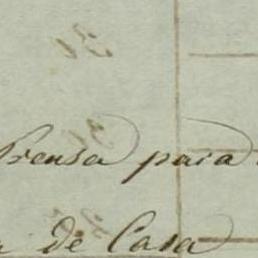 Prensa para
de Casa